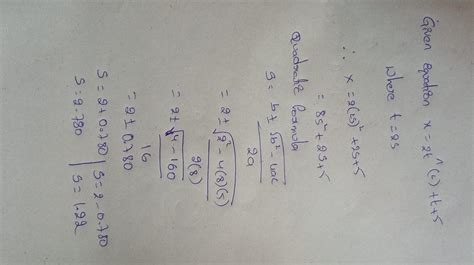 Given equation x = 2t^(2) + t + 5
where t = 2s
∴ x = 2(2s)² + 2s + 5
= 8s² + 2s + 5
Quadratic formula
s = b ± √b² - 4ac
2a
= 2 ± √2² - 4(8)(5)
2(8)
= 2 ± √4 - 160
16
= 2 ± 0.780
s = 2 + 0.780 | s = 2 - 0.780
s = 2.780 | s = 1.22